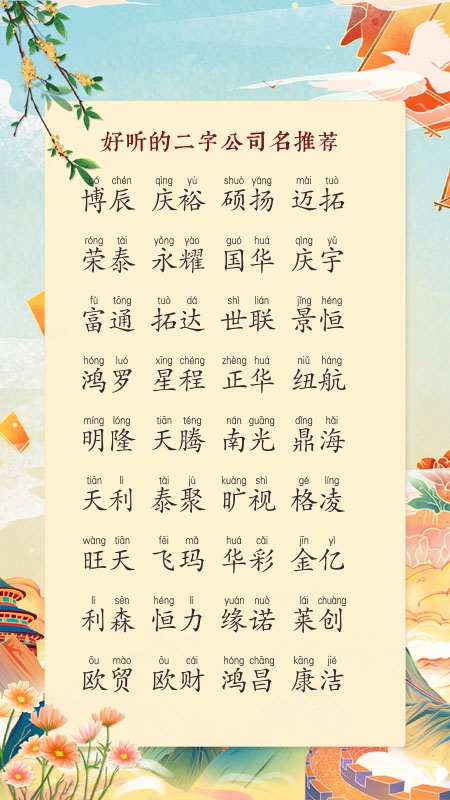 好听的二字公司名推荐
bó chén qìng yù shuò yáng mài tuò
博辰 庆裕 硕扬 迈拓
róng tài yǒng yào guó huá qìng yǔ
荣泰 永耀 国华 庆宇
fù tōng tuò dá shì lián jǐng héng
富通 拓达 世联 景恒
hóng luó xīng chéng zhèng huá niǔ háng
鸿罗 星程 正华 纽航
míng lóng tiān téng nán guāng dǐng hǎi
明隆 天腾 南光 鼎海
tiān lì tài jù kuàng shì gé líng
天利 泰聚 旷视 格凌
wàng tiān fēi mǎ huá cǎi jīn yì
旺天 飞玛 华彩 金亿
lì sēn héng lì yuán nuò lái chuàng
利森 恒力 缘诺 莱创
ōu mào ōu cái hóng chāng kāng jié
欧贸 欧财 鸿昌 康洁